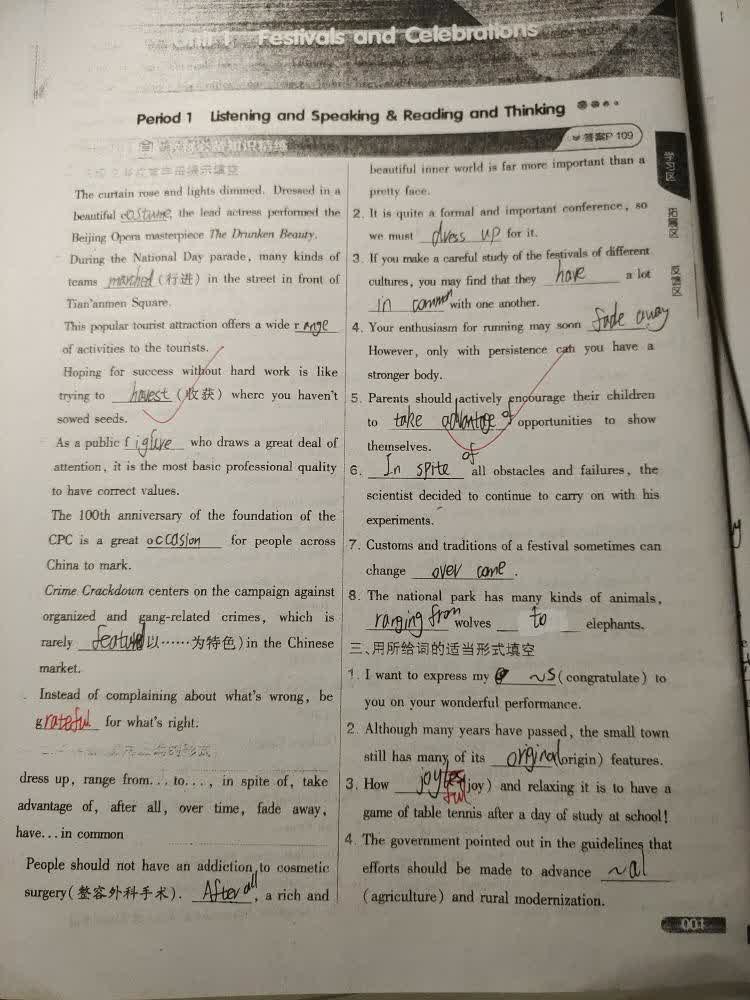 Unit 1 Festivals and Celebrations
Period 1 Listening and Speaking & Reading and Thinking
答案P 109
The curtain rose and lights dimmed. Dressed in a
beautiful costume, the lead actress performed the
Beijing Opera masterpiece The Drunken Beauty.
During the National Day parade, many kinds of
teams marched (行进) in the street in front of
Tian'anmen Square.
This popular tourist attraction offers a wide range
of activities to the tourists.
Hoping for success without hard work is like
trying to havest (收获) where you haven't
sowed seeds.
As a public f igure who draws a great deal of
attention, it is the most basic professional quality
to have correct values.
The 100th anniversary of the foundation of the
CPC is a great occasion for people across
China to mark.
Crime Crackdown centers on the campaign against
organized and gang-related crimes, which is
rarely featured (以……为特色) in the Chinese
market.
Instead of complaining about what's wrong, be
grateful for what's right.
dress up, range from... to..., in spite of, take
advantage of, after all, over time, fade away,
have... in common
People should not have an addiction to cosmetic
surgery(整容外科手术). After all, a rich and
beautiful inner world is far more important than a
pretty face.
2. It is quite a formal and important conference, so
we must dress up for it.
3. If you make a careful study of the festivals of different
cultures, you may find that they have a lot
in common with one another.
4. Your enthusiasm for running may soon fade away
However, only with persistence can you have a
stronger body.
5. Parents should actively encourage their children
to take advantage of opportunities to show
themselves.
6. In spite of all obstacles and failures, the
scientist decided to continue to carry on with his
experiments.
7. Customs and traditions of a festival sometimes can
change over come.
8. The national park has many kinds of animals,
ranging from wolves to elephants.
三、用所给词的适当形式填空
1. I want to express my ~s (congratulate) to
you on your wonderful performance.
2. Although many years have passed, the small town
still has many of its orginal (origin) features.
3. How joyful (joy) and relaxing it is to have a
game of table tennis after a day of study at school!
4. The government pointed out in the guidelines that
efforts should be made to advance ~al
(agriculture) and rural modernization.
学习区
拓展区
反馈区
001